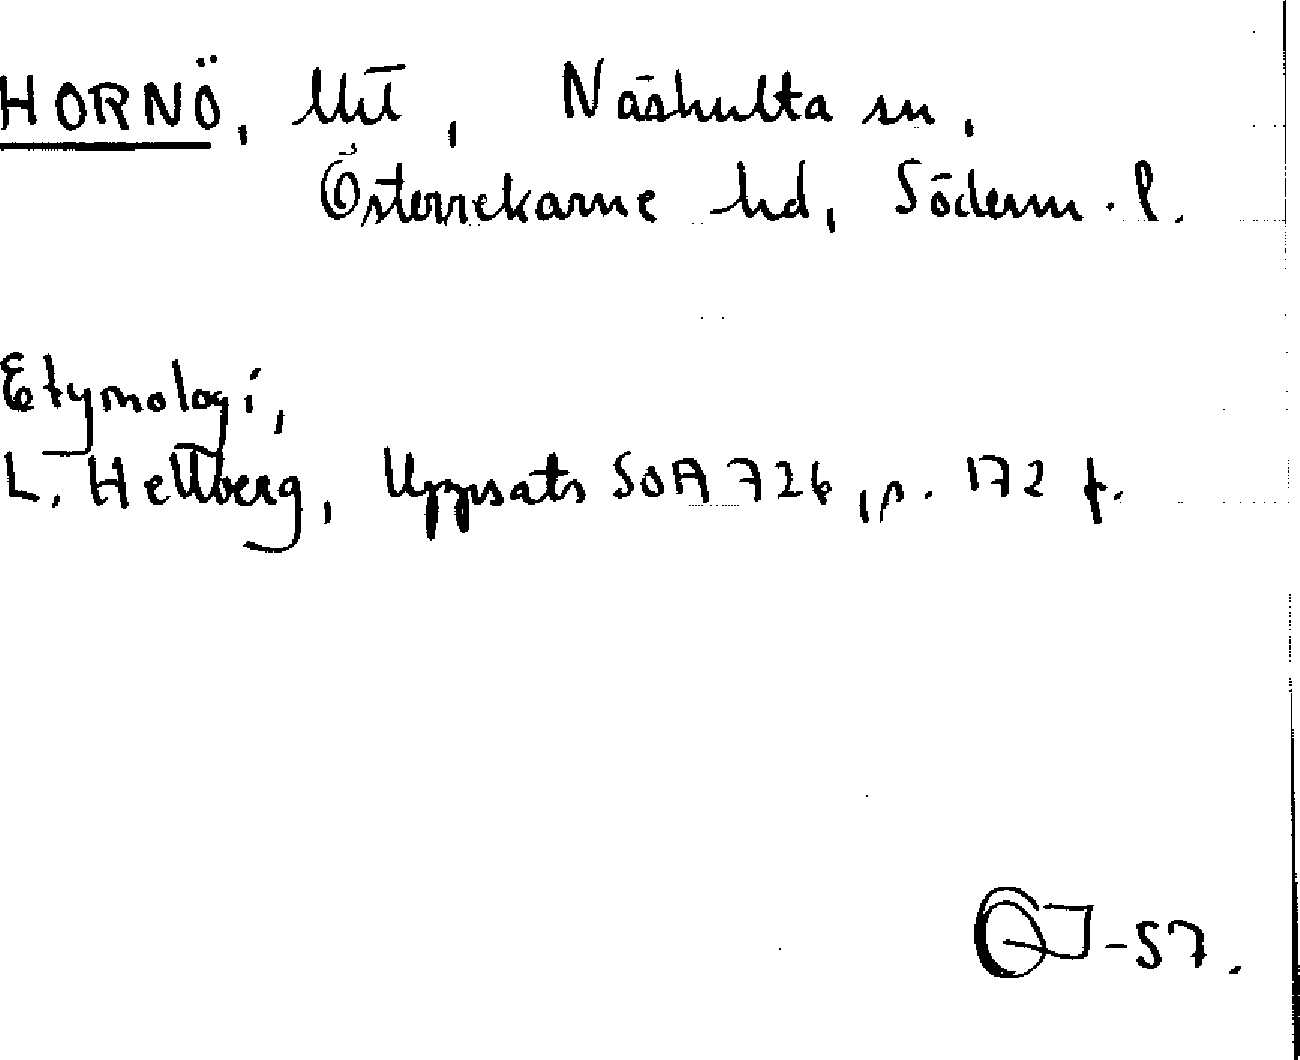 HORNÖ, Näshulta sn,
Österrekarne hd, Söderm. l.
Etymologi,
L. Hellberg, Uppsats SOA 726, p. 172 f.
-57.